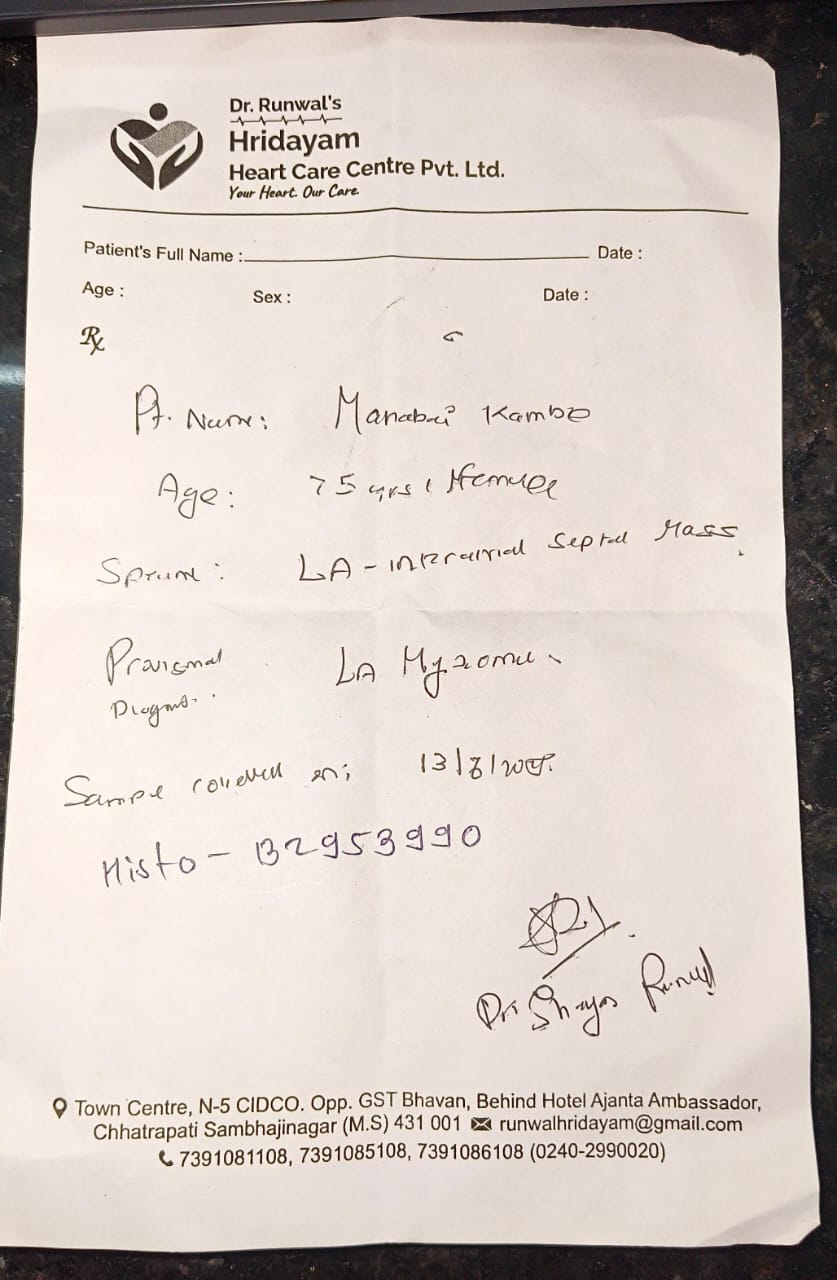 Dr. Runwal's
Hridayam
Heart Care Centre Pvt. Ltd.
Your Heart. Our Care.
Patient's Full Name : Date :
Age : Sex : Date :
Rx
Pt. Name: Manabai Kambe
Age: 75 yrs / Female
LA - interatrial Septal Mass.
Provisional LA Myxoma
Sample collected on;
Histo - B2953990
Dr. Shreyas Runwal
Town Centre, N-5 CIDCO. Opp. GST Bhavan, Behind Hotel Ajanta Ambassador,
Chhatrapati Sambhajinagar (M.S) 431 001 runwalhridayam@gmail.com
7391081108, 7391085108, 7391086108 (0240-2990020)